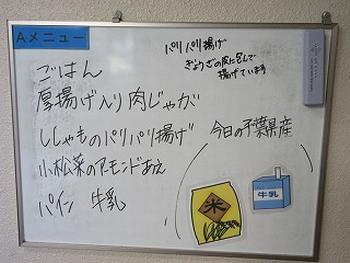 Aメニュー
パリパリ揚げ
ぎょうざの皮に包んで
揚げています
ごはん
厚揚げ入り肉じゃが
ししゃものパリパリ揚げ
小松菜のアーモンドあえ
パイン 牛乳
今日の千葉県産
米
牛乳